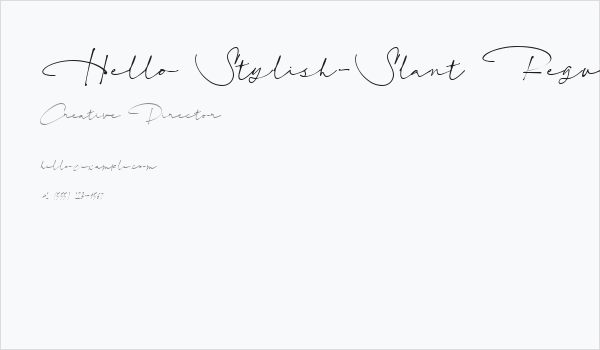 Hello Stylish-Slant Regu
Creative Director
hello@example.com